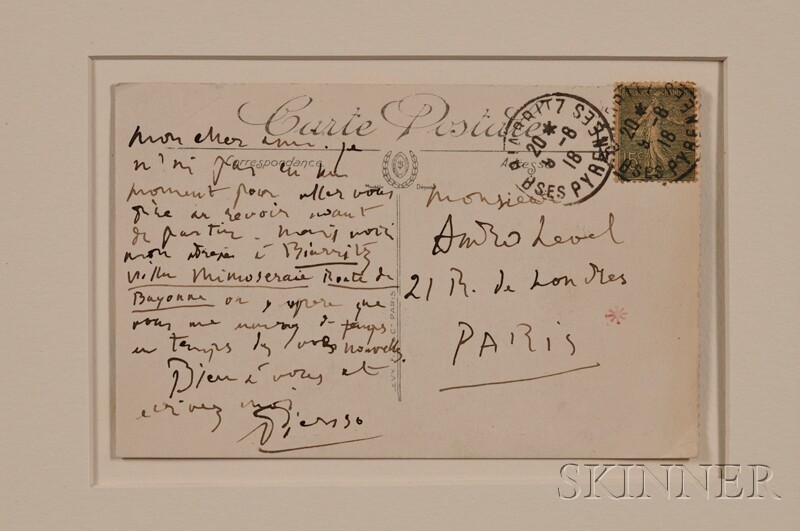 Carte Postale
Correspondance
Adresse
mon cher ami. je
n'ai pas eu un
moment pour aller vous
dire au revoir avant
de partir. Mais voici
mon adresse à Biarritz
villa Mimoseraie Route de
Bayonne où j'espere que
vous me donnerez de temps
en temps de vos nouvelles.
Bien à vous et
ecrivez moi
Picasso
Monsieur
André Level
21 R. de Londres
PARIS
BIARRITZ
20 *
8 -8
18
BSES PYRENEES
20 *
8 -8
18
BSES PYRENEES
SKINNER